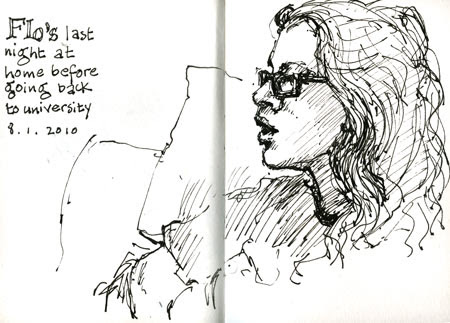 Flo's last
night at
home before
going back
to university
8.1.2010